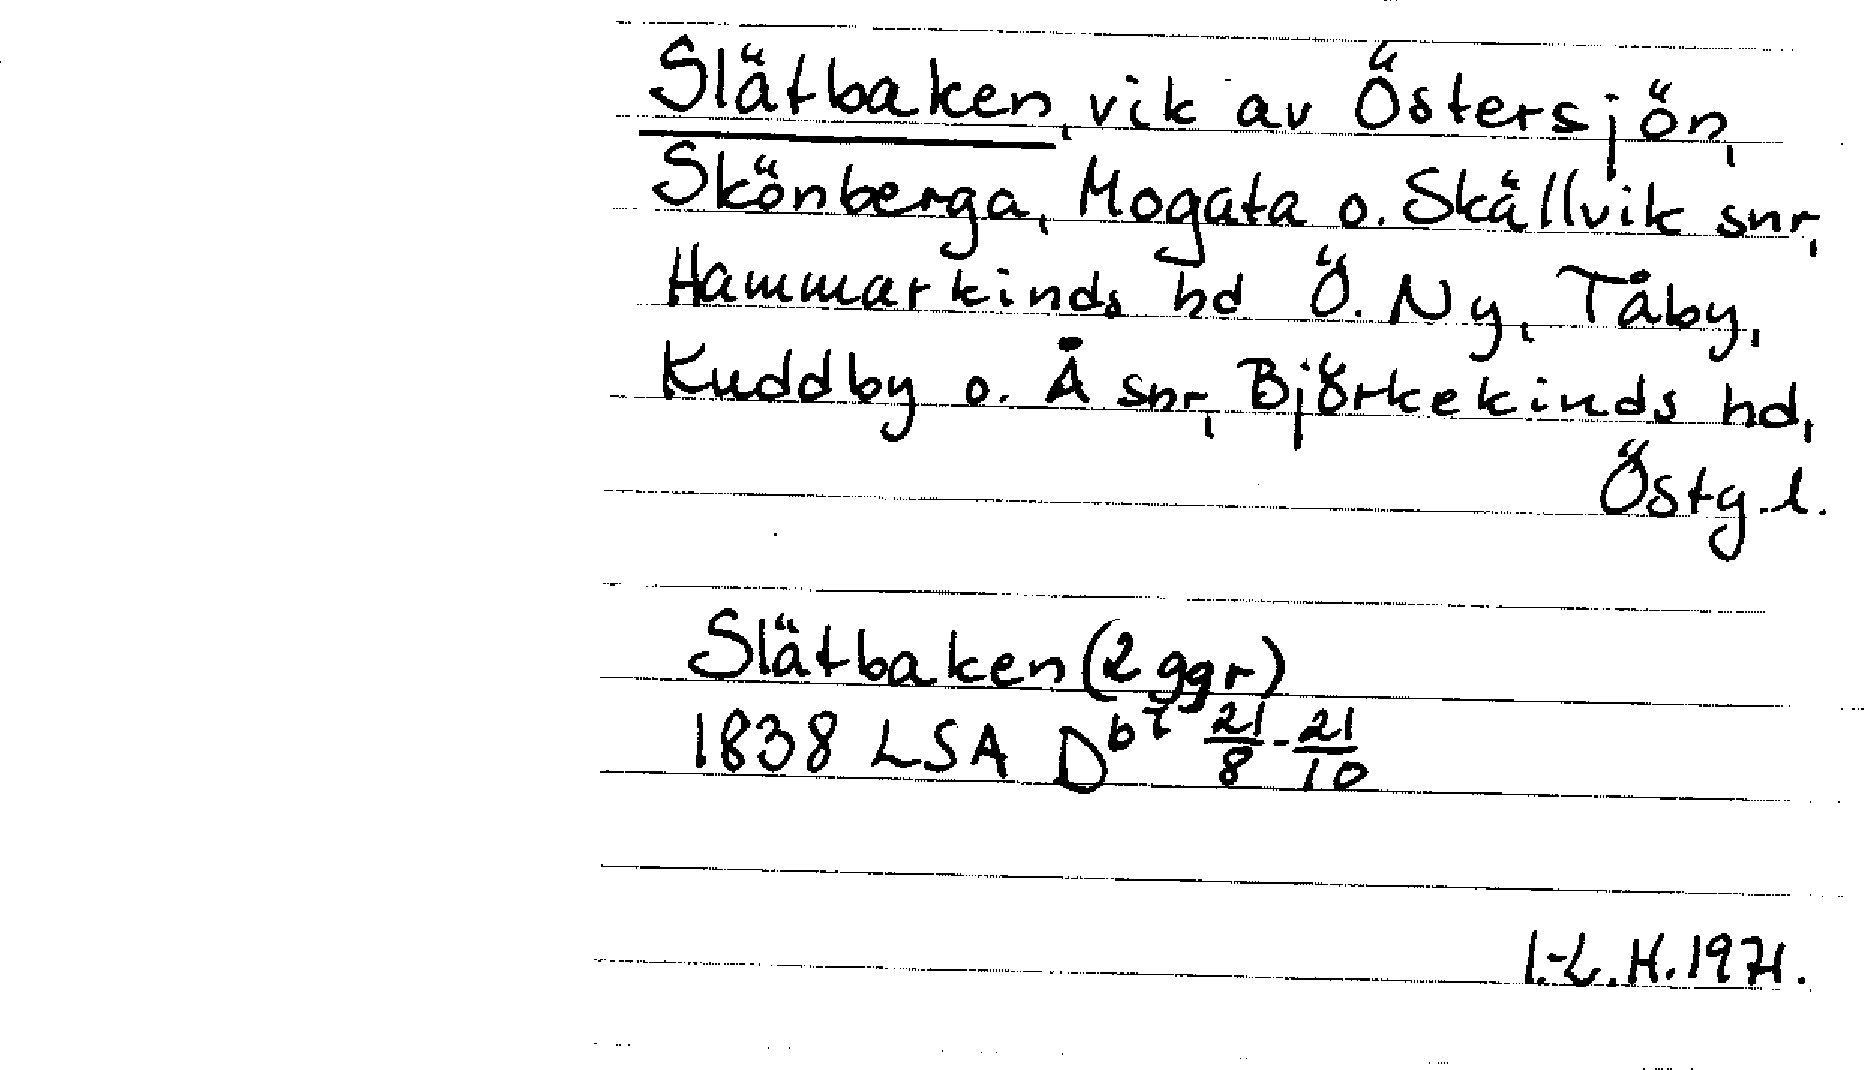 Slätbaken, vik av Östersjön,
Skönberga, Mogata o. Skällvik snr,
Hammarkinds hd Ö. Ny, Tåby,
Kuddby o. Å snr, Björkekinds hd,
Östg.l.
Slätbaken (2 ggr)
1838 LSA D 21/8 - 21/10
I.-L. H. 1971.